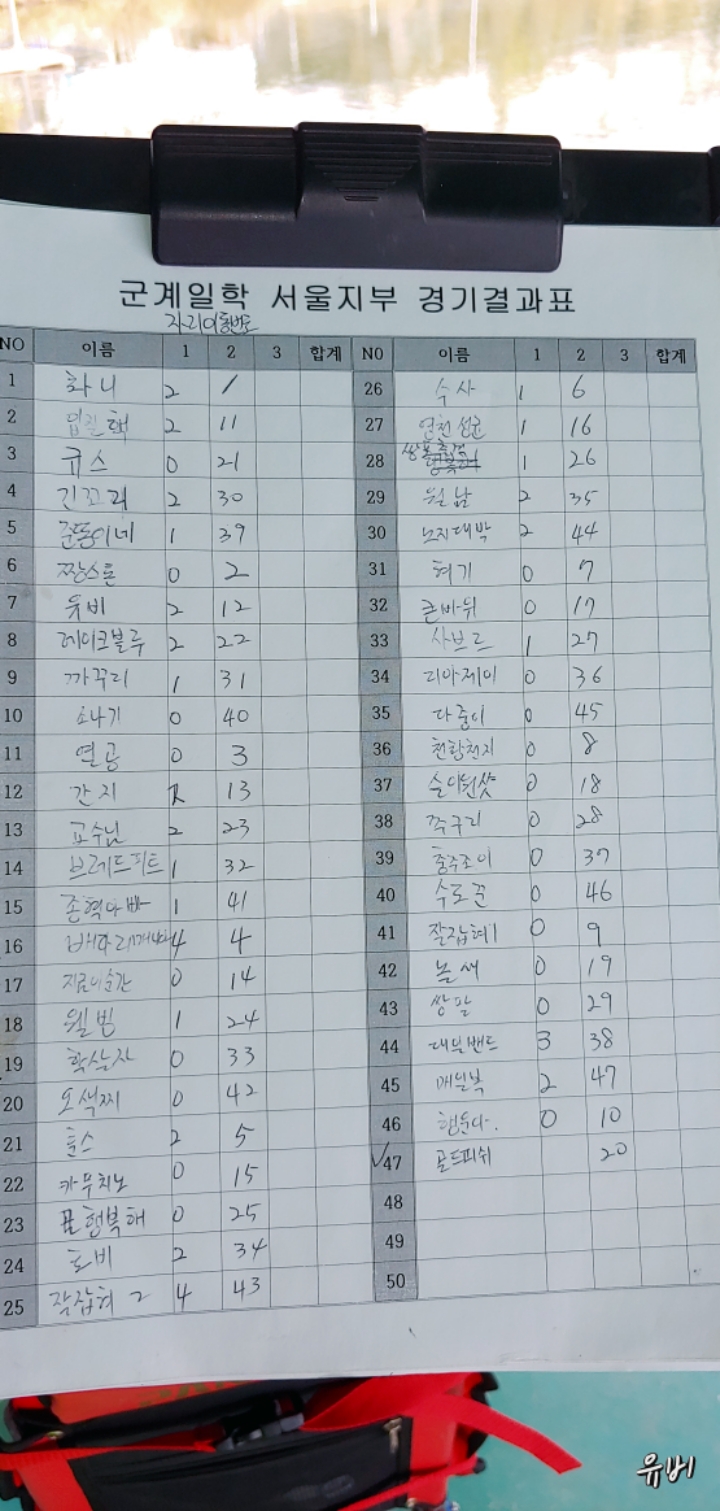 군계일학 서울지부 경기결과표
자리이동번호
NO 이름 1 2 3 합계
1 화니 2 1
2 입질핵 2 11
3 큐스 0 21
4 긴꼬리 2 30
5 준똥이네 1 39
6 짱스톤 0 2
7 유비 2 12
8 레이크블루 2 22
9 까꾸리 1 31
10 소나기 0 40
11 열공 0 3
12 간지 13
13 교수님 2 23
14 브레드피트 1 32
15 존혁아빠 1 41
16 4 4
17 지금이순간 0 14
18 월빙 1 24
19 학살자 0 33
20 오색찌 0 42
21 훌스 2 5
22 카푸치노 0 15
23 표행복해 0 25
24 토비 2 34
25 잘잡혀 2 4 43
NO 이름 1 2 3 합계
26 수사 1 6
27 연천성균 1 16
28 쌍포출격 1 26
29 월남 2 35
30 노지대박 2 44
31 혀기 0 7
32 큰바위 0 17
33 사브르 1 27
34 리아제이 0 36
35 다중이 0 45
36 천랑천지 0 8
37 0 18
38 꺽구리 0 28
39 충주조이 0 37
40 수도꾼 0 46
41 잘잡혀1 0 9
42 놀새 0 19
43 쌍팔 0 29
44 대일밴드 3 38
45 매일낚 2 47
46 행운다. 0 10
47 골드피쉬 20
48
49
50
유비